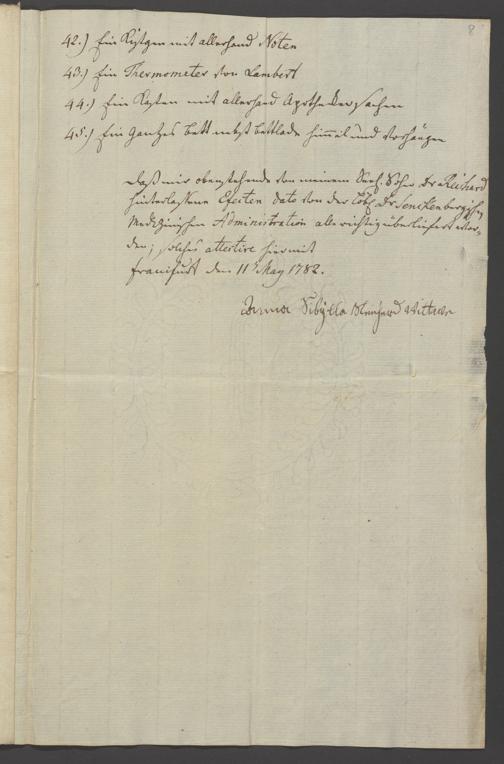 8
42.) Ein Kistgen mit allerhand Noten
43.) Ein Thermometer von Lambert
44.) Ein Kasten mit allerhand Apotheckersachen
45.) Ein Gantzes Bett nebst Bettlade Himmel und Vorhängen
Daß mir obenstehende von meinem Seel. Sohn Dr Reichard
hinterlassene Effecten dato von der Löbl. Dr Senckenbergisch
Medizinischen Administration alle richtig überliefert wor-
den; solches attestire hiermit
Franckfurt den 11t May 1782.
Anna Sibylla Reichard Wittwe